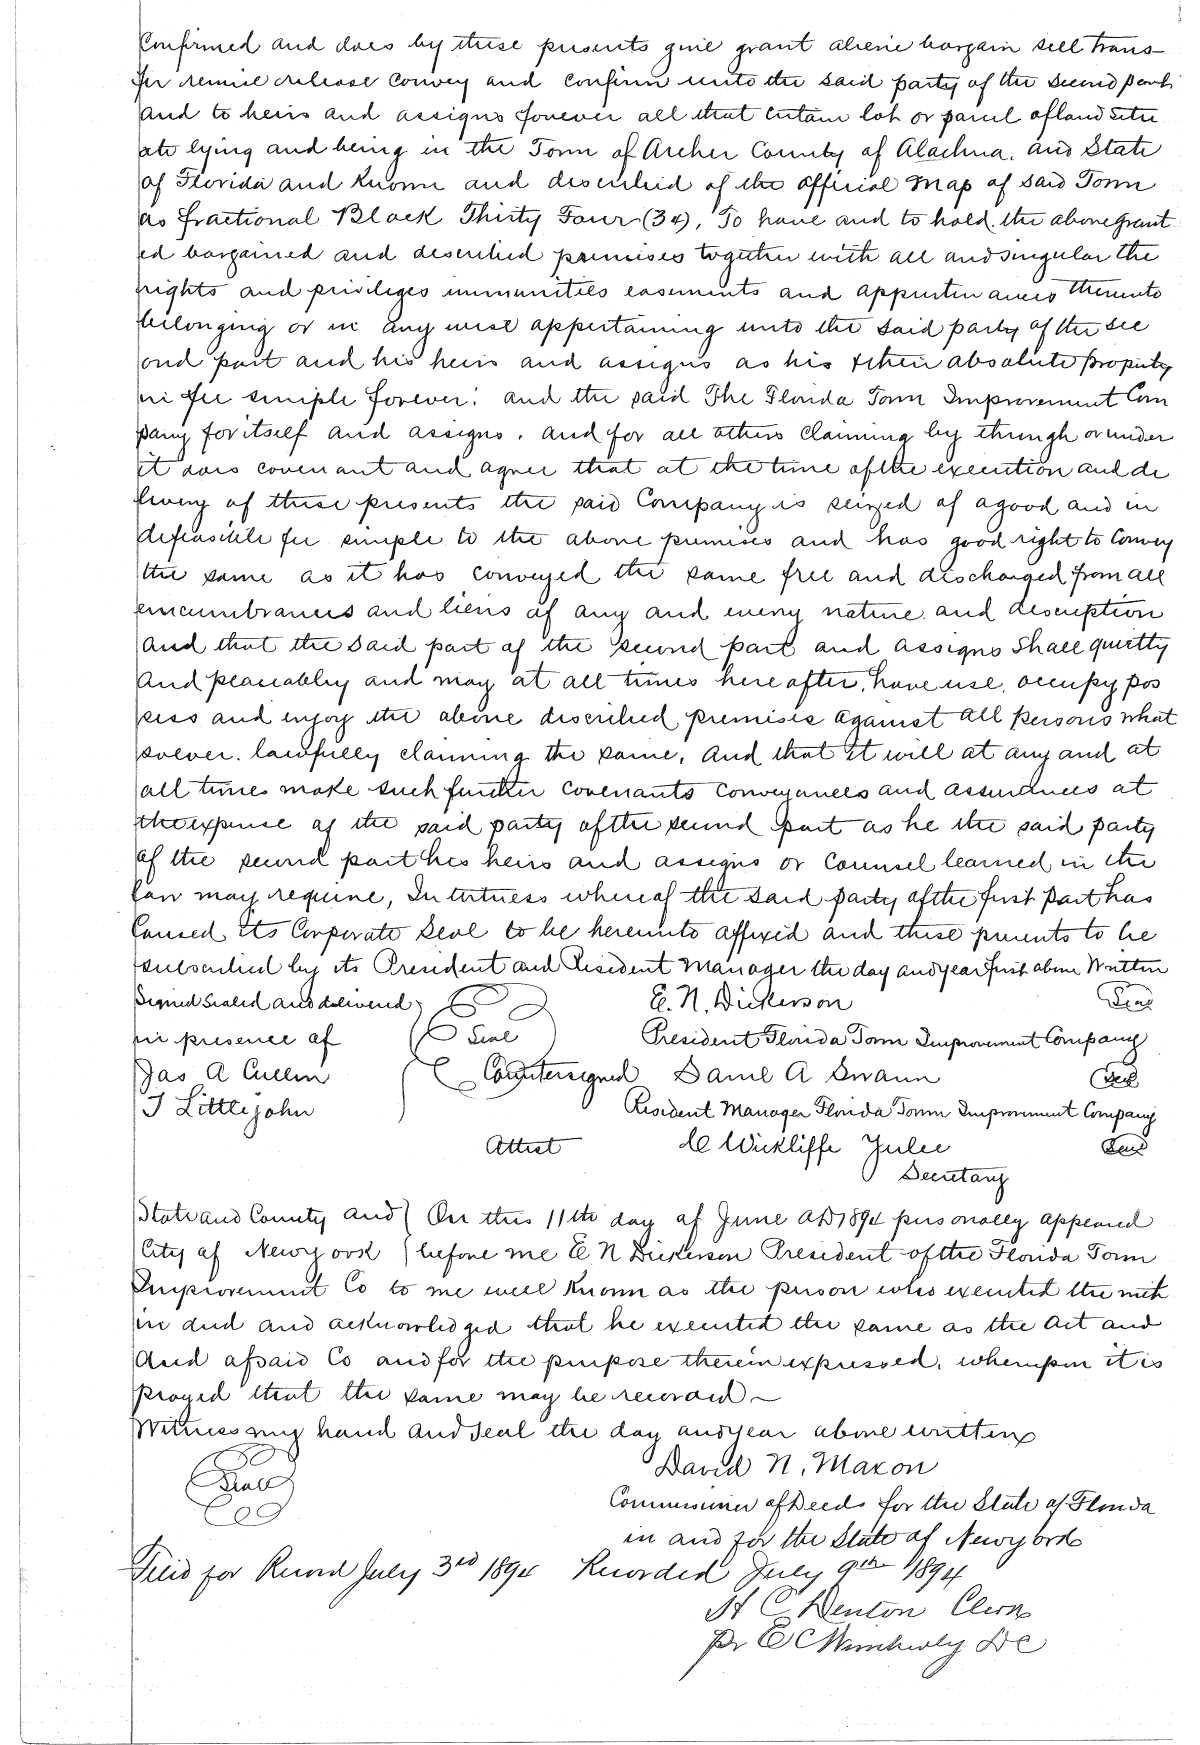 Confirmed and does by these presents give grant aliene bargain sell trans-
fer remise release convey and confirm unto the said party of the second part
and to heirs and assigns forever all that certain lot or parcel of land situ
ate lying and being in the Town of Archer County of Alachua, and State
of Florida and Known and described of the official Map of said Town
as fractional Block Thirty Four (34), To have and to hold the above grant
ed bargained and described premises together with all and singular the
rights and privileges immunities easements and appurtenances thereunto
belonging or in any wise appertaining unto the said party of the sec
ond part and his heirs and assigns as his & their absolute property
in fee simple forever: and the said The Florida Town Improvement Com
pany for itself and assigns, and for all others claiming by through or under
it does covenant and agree that at the time of the execution and de
livery of these presents the said Company is seized of a good and in
defeasible fee simple to the above premises and has good right to Convey
the same as it has conveyed the same free and discharged from all
encumbrances and liens of any and every nature and description
and that the said part of the second part and assigns shall quietly
and peaceably and may at all times hereafter, have use, occupy pos
sess and enjoy the above described premises against all persons what
soever. lawfully claiming the same, and that it will at any and at
all times make such further covenants conveyances and assurances at
the expense of the said party of the second part as he the said party
of the second part his heirs and assigns or counsel learned in the
law may require, In witness whereof the said party of the first part has
Caused its Corporate Seal to be hereunto affixed and these presents to be
subscribed by its President and Resident Manager the day and year first above Written
Signed Sealed and delivered E. N. Dickerson Seal
in presence of Seal President Florida Town Improvement Company
Jas A Cullen Countersigned Daniel A Swann Seal
T Littlejohn Resident Manager Florida Town Improvement Company
Attest C Wickliffe Yulee Seal
Secretary
State and County and } On this 11th day of June AD 1894 personally appeared
City of New york } before me E N Dickerson President of the Florida Town
Improvement Co to me well Known as the person who executed the with
in deed and acknowledged that he executed the same as the act and
deed of said Co and for the purpose therein expressed, whereupon it is
prayed that the same may be recorded~
Witness my hand and seal the day and year above written
David N. Maxon
Seal Commissioner of Deeds for the State of Florida
in and for the State of New york
Filed for Record July 3rd 1894 Recorded July 9th 1894
H C Denton Clerk
Pr E C Wimberly DC